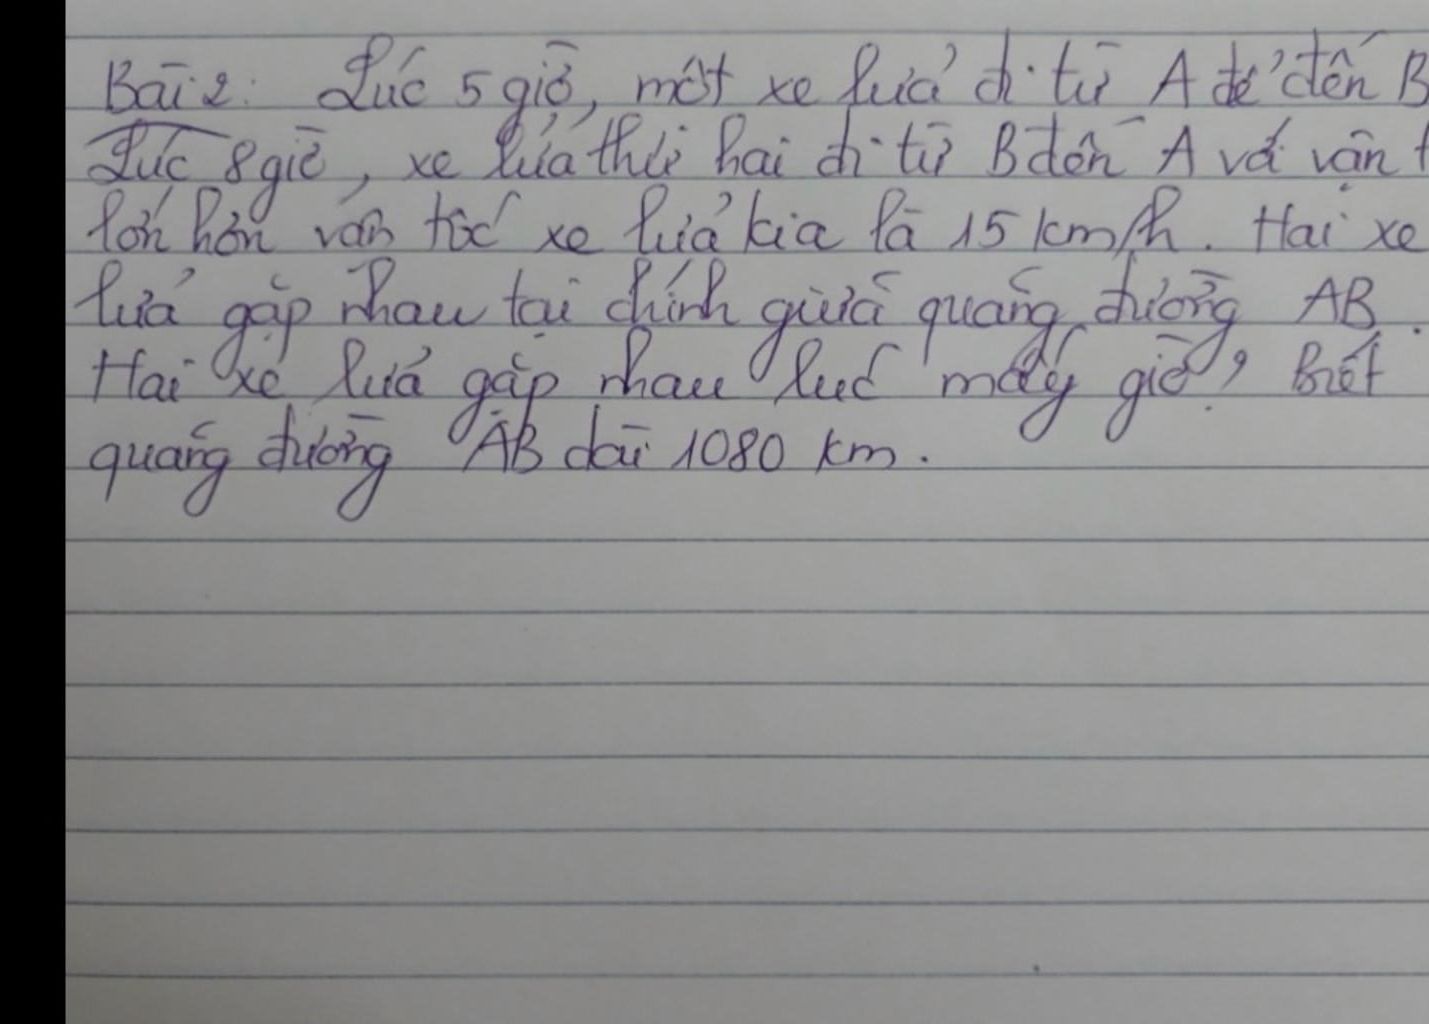 Bài 2: Lúc 5 giờ, một xe lửa đi từ A để đến B
Lúc 8 giờ, xe lửa thứ hai đi từ B đến A với vận t
lớn hơn vận tốc xe lửa kia là 15 km/h. Hai xe
lửa gặp nhau tại chính giữa quãng đường AB.
Hai xe lửa gặp nhau lúc mấy giờ? Biết
quãng đường AB dài 1080 km.